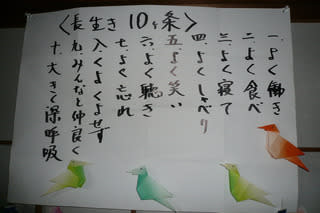 〈長生き10ヶ条〉
一、よく働き
二、よく食べ
三、よく寝て
四、よくしゃべり
五、よく笑い
六、よく聴き
七、よく忘れ
八、くよくよせず
九、みんなと仲良く
十、大きく深呼吸